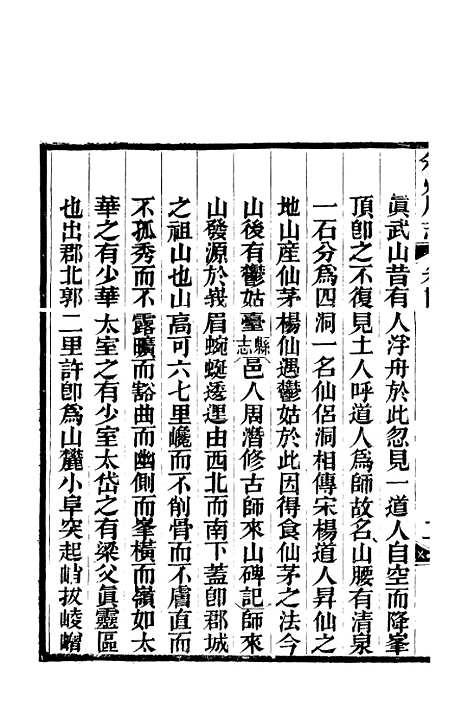 眞武山昔有人浮舟於此忽見一道人自空而降峯
頂卽之不復見土人呼道人為師故名山腰有清泉
一石分為四洞一名仙侶洞相傳宋楊道人昇仙之
地山産仙茅楊仙遇鬱姑於此因得食仙茅之法今
山後有鬱姑臺縣志邑人周潛修古師來山碑記師來
山發源於峩眉蜿蜒逶迤由西北而南下蓋卽郡城
之祖山也山高可六七里巉而不削骨而不膚直而
不孤秀而不露曠而豁曲而幽側而峯橫而嶺如太
華之有少華太室之有少室太岱之有梁父眞靈區
也出郡北郭二里許卽為山麓小阜突起峭拔崚嶒